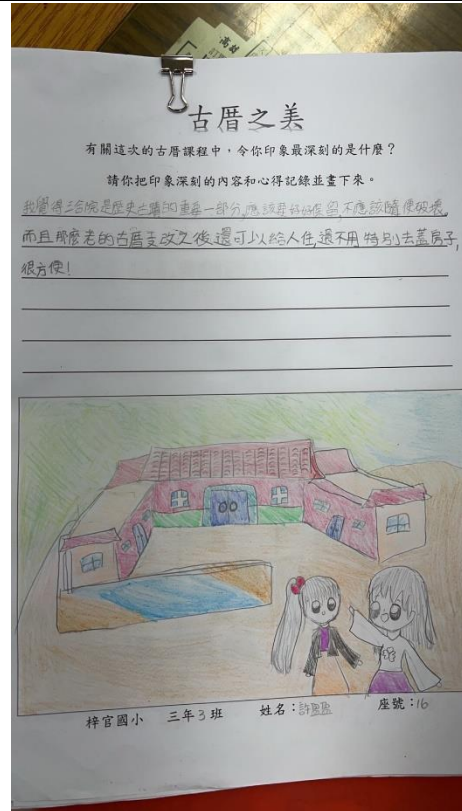 古厝之美
有關這次的古厝課程中,令你印象最深刻的是什麼?
請你把印象深刻的內容和心得記錄並畫下來。
我覺得三合院是歷史古蹟的重要一部分,應該是好好保留,不應該隨便破壞,
而且那麼老的古厝支改之後還可以給人住,還不用特別去蓋房子,
很方便!
梓官國小 三年3班 姓名:許 座號:16